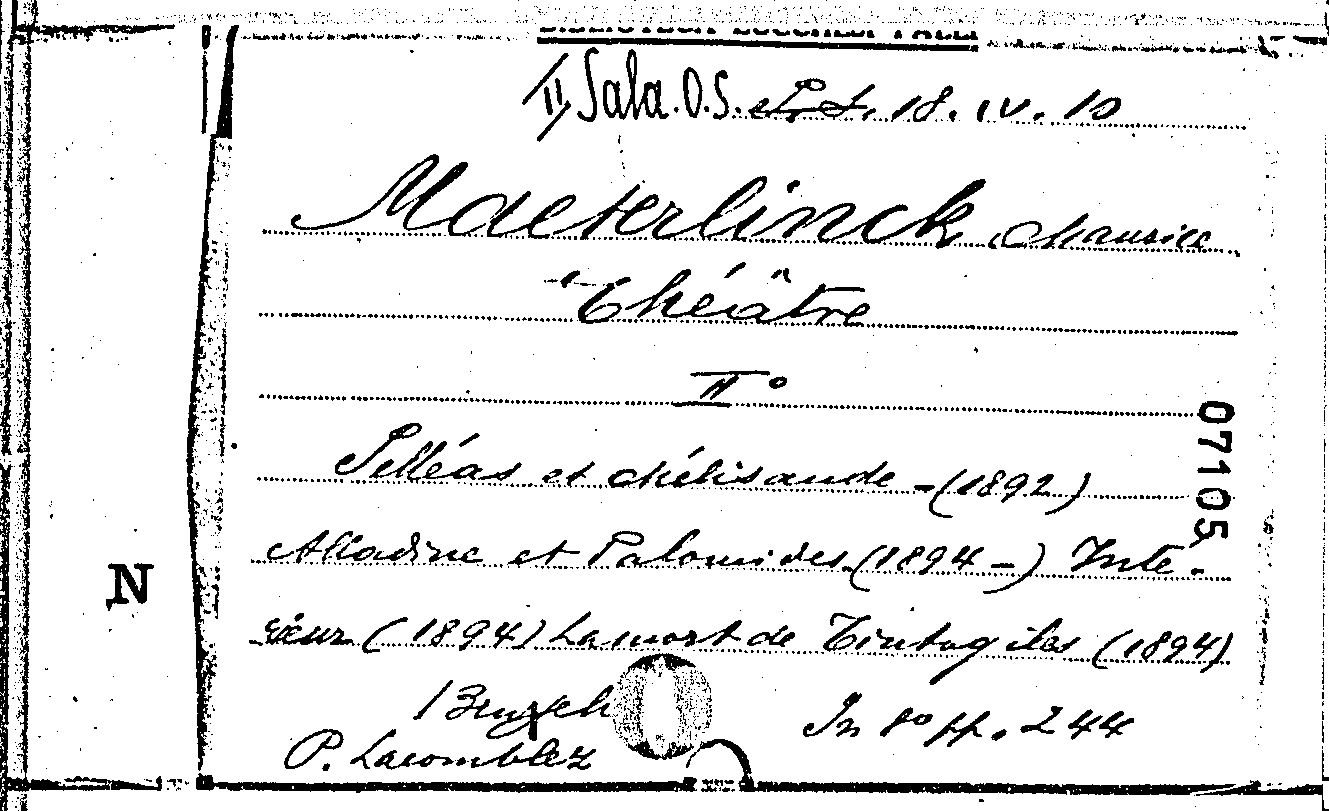 BIBLIOTECA LUCCHESI PALLI
II Sala. O. S. 18. IV. 10
Maeterlinck, Maurice
Théâtre
II°
Pelléas et Mélisande - (1892)
Alladine et Palomides. (1894 -) Inté-
rieur (1894) La mort de Tintagiles (1894)
In 8° pp. 244
P. Lacomblez
07105
N